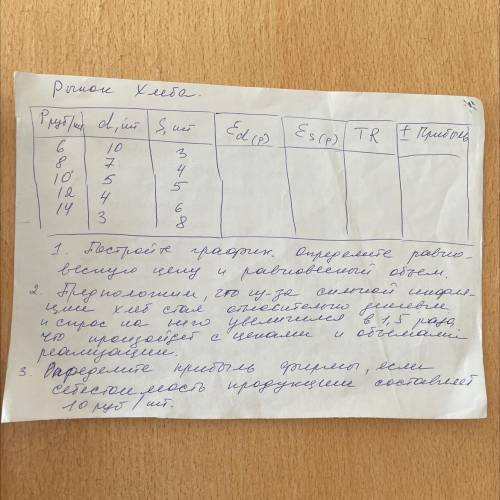 Рынок хлеба.
P, руб/шт d, шт S, шт Ed(p) Es(p) TR ± Прибыль
6 10 3
8 7 4
10 5 5
12 4 6
14 3 8
1. Постройте график. Определите равно-
весную цену и равновесный объем.
2. Предположим, что из-за сильной инфля-
ции хлеб стал относительно дешевле
и спрос на него увеличился в 1,5 раза,
что произойдет с ценами и объемами
реализации.
3. Определите прибыль фирмы, если
себестоимость продукции составляет
10 руб/шт.